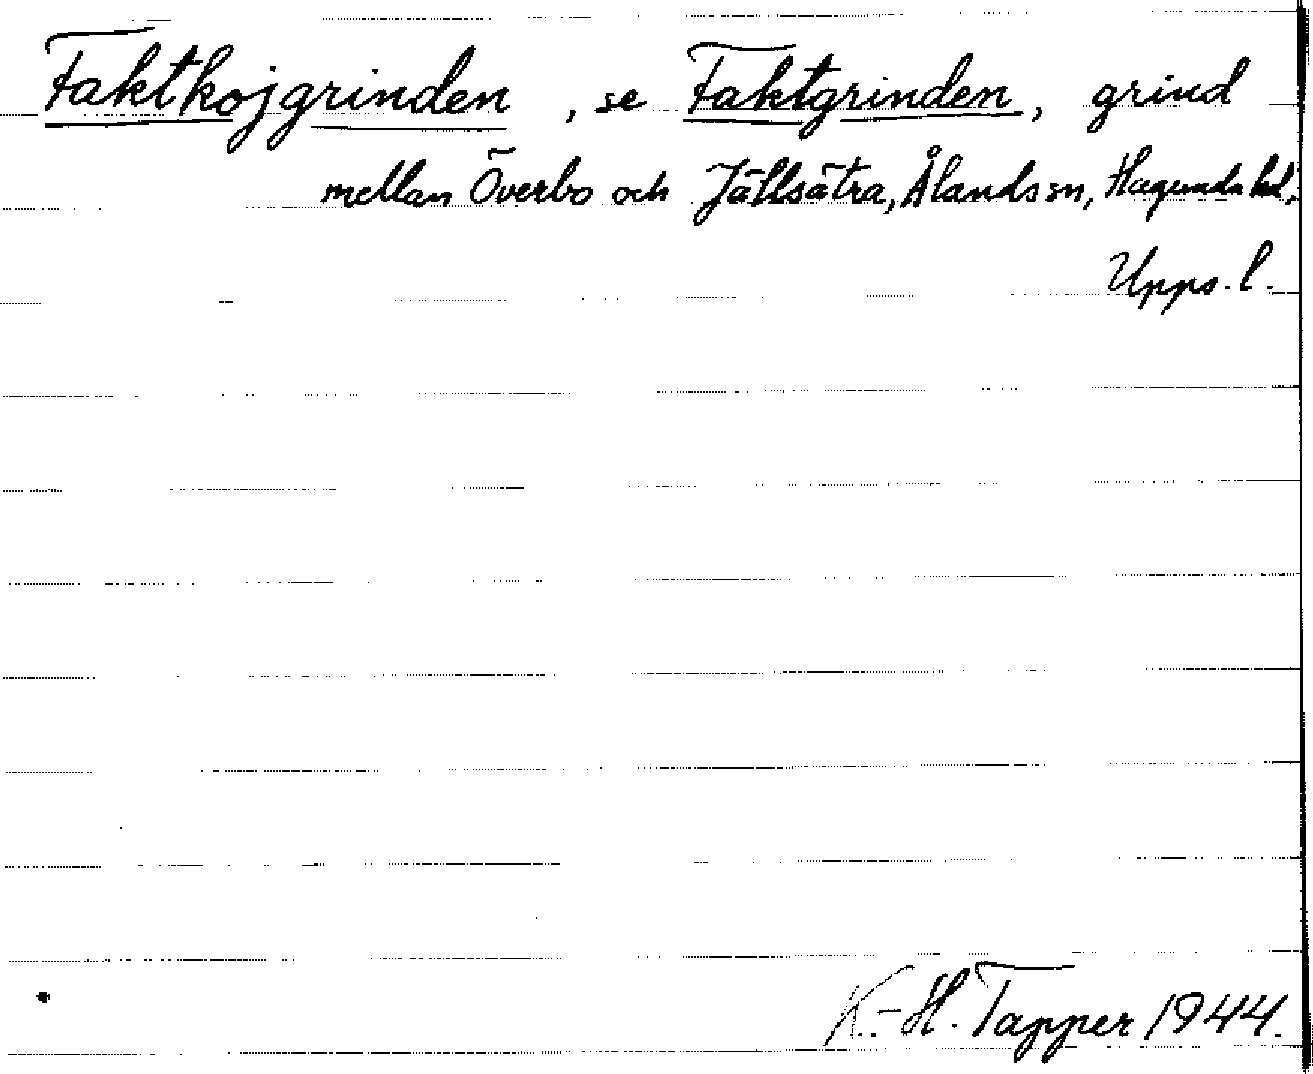 Faktkojgrinden, se Faktgrinden, grind
mellan Överbo och Jällsätra, Ålands sn, Hagunda hd,
Upps. l.
K.-H. Tapper 1944.